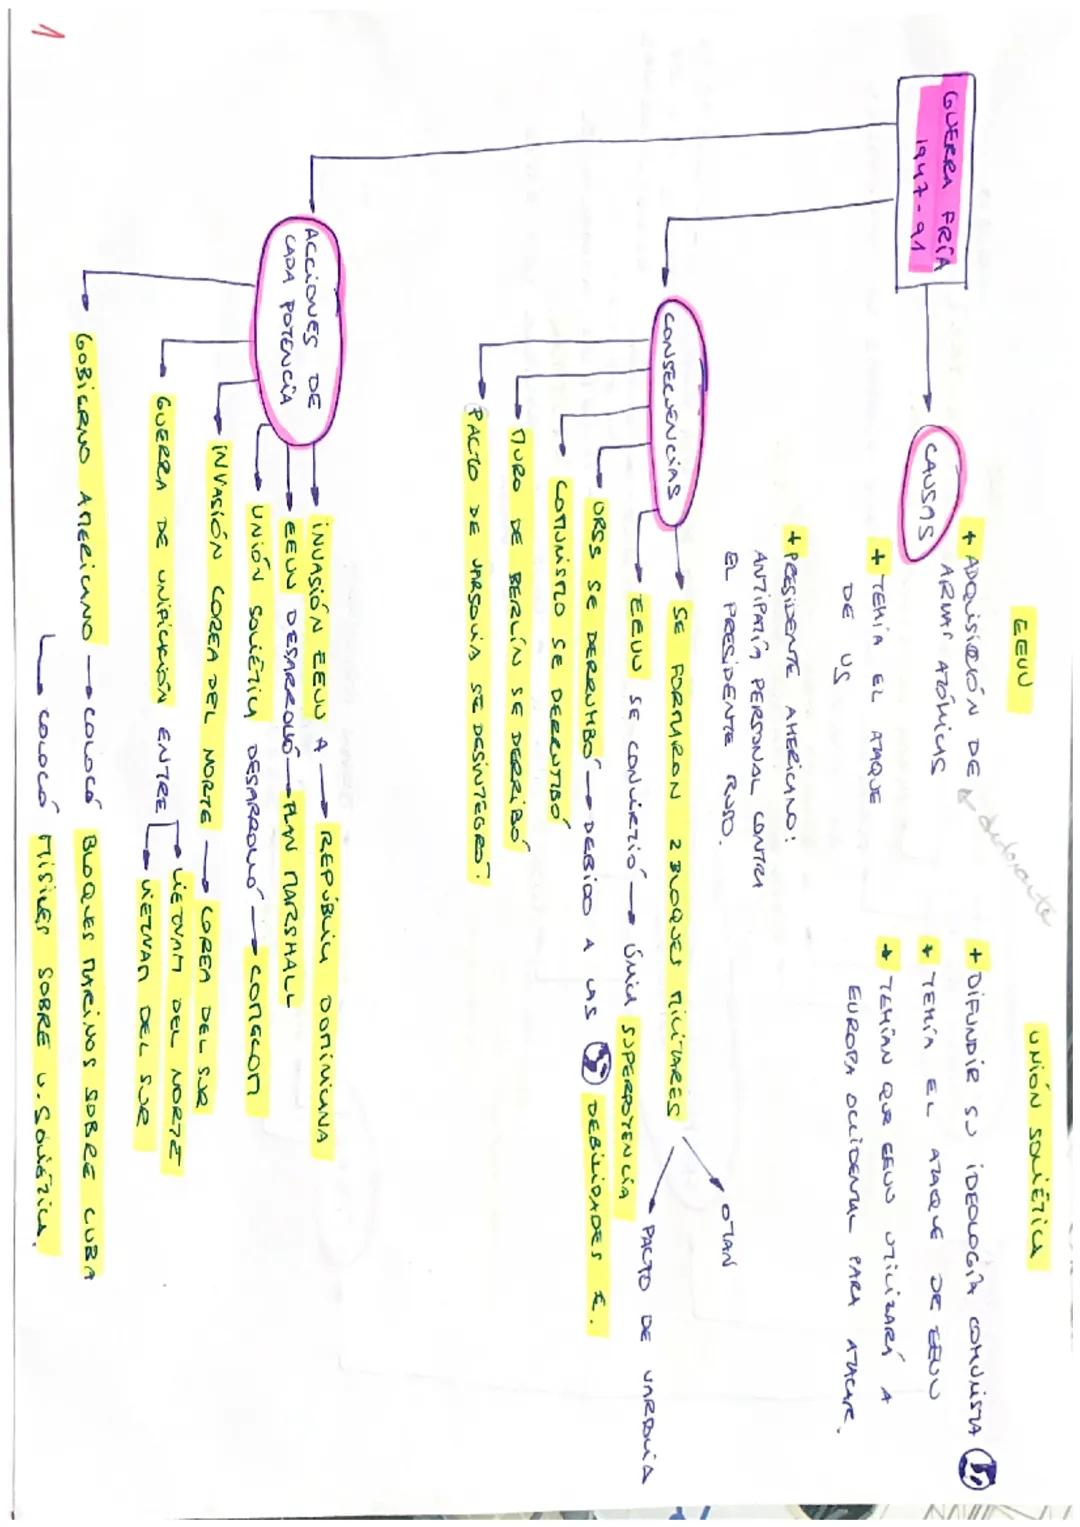 GUERRA FRÍA
1947-91
CAUSAS
EEUU
+ ADQUISICIÓN DE
ARMAS ATÓMICAS
+ TEMÍA EL ATAQUE
DE US
+ PRESIDENTE AMERICANO:
ANTIPATÍA PERSONAL CONTRA
EL PRESIDENTE RUSO.
UNIÓN SOVIÉTICA
+ DIFUNDIR SU IDEOLOGÍA COMUNISTA
+ TEMÍA EL ATAQUE DE EEUU
+ TEMÍAN QUE EEUU UTILIZARÁ A
EUROPA OCCIDENTAL PARA ATACAR.
CONSECUENCIAS
SE FORMARON 2 BLOQUES MILITARES
OTAN
PACTO DE VARSOVIA
EEUU SE CONVIRTIÓ → ÚNICA SUPERPOTENCIA
URSS SE DERRUMBÓ → DEBIDO A LAS DEBILIDADES E.
COMUNISMO SE DERRUMBÓ
MURO DE BERLÍN SE DERRIBÓ
PACTO DE VARSOVIA SE DESINTEGRÓ
ACCIONES DE
CADA POTENCIA
INVASIÓN EEUU A → REPÚBLICA DOMINICANA
EEUU DESARROLLÓ → PLAN MARSHALL
UNIÓN SOVIÉTICA DESARROLLÓ → COMECON
INVASIÓN COREA DEL NORTE → COREA DEL SUR
GUERRA DE UNIFICACIÓN ENTRE
VIETNAM DEL NORTE
VIETNAM DEL SUR
GOBIERNO AMERICANO → COLOCÓ BLOQUES MARINOS SOBRE CUBA
→ COLOCÓ MISILES SOBRE U. SOVIÉTICA.
1